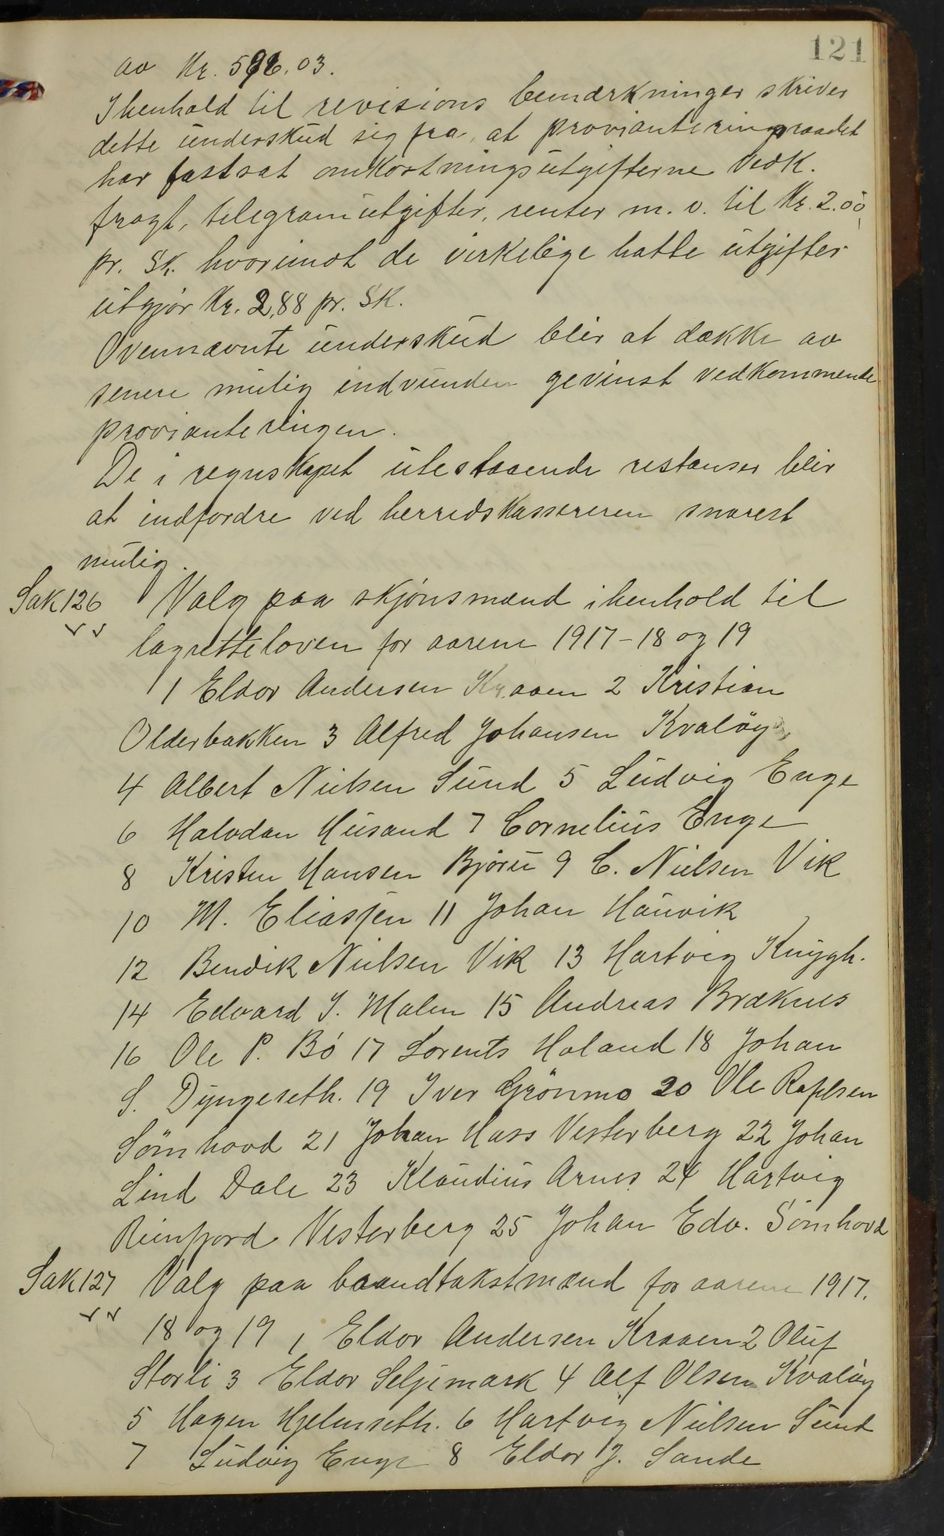 121
av Kr. 596.03.
Ihenhold til revisions bemærkninger skriver
dette underskud sig fra, at provianteringsraadet
har fastsat omkostningsutgifterne vedk.
fragt, telegramutgifter, renter m. v. til Kr. 2.00
pr. sk. hvorimot de virkelige hatte utgifter
utgjør Kr. 2,88 pr. sk.
Ovennævnte underskud blir at dække av
senere mulig indvunden gevinst vedkommende
provianteringen.
De i regnskapet utestaaende restanser blir
at indfordre ved herredskassereren snarest
mulig.
Sak 126 Valg paa skjønsmænd ihenhold til
lagretteloven for aarene 1917-18 og 19
1 Eldor Andersen Kraaen 2 Kristian
Olderbakken 3 Alfred Johansen Kvaløy
4 Albert Nielsen Sund 5 Ludvig Enge
6 Halvdan Husand 7 Cornelius Enge
8 Kristen Hansen Bjøru 9 C. Nielsen Vik
10 M. Eliasjen 11 Johan Hauvik
12 Bendik Nielsen Vik 13 Hartvig Knygh.
14 Edvard J. Malen 15 Andreas Bræknes
16 Ole P. Bö 17 Lorents Haland 18 Johan
S. Dyngeseth. 19 Iver Grönmo 20 Ole Raplsen
Sömhovd 21 Johan Hass Vesterberg 22 Johan
Lind Dale 23 Klaudius Arnes 24 Hartvig
Reinfjord Vesterberg 25 Johan Edv. Sömhovd
Sak 127 Valg paa brandtakstmænd for aarene 1917.
18 og 19 1 Eldor Andersen Kraaen 2 Oluf
Storli 3 Eldor Seljemark 4 Alf Olsen Kvaløy
5 Hagen Hjelmseth. 6 Hartvig Nielsen Sund
7 Ludvig Enge 8 Eldor J. Sande